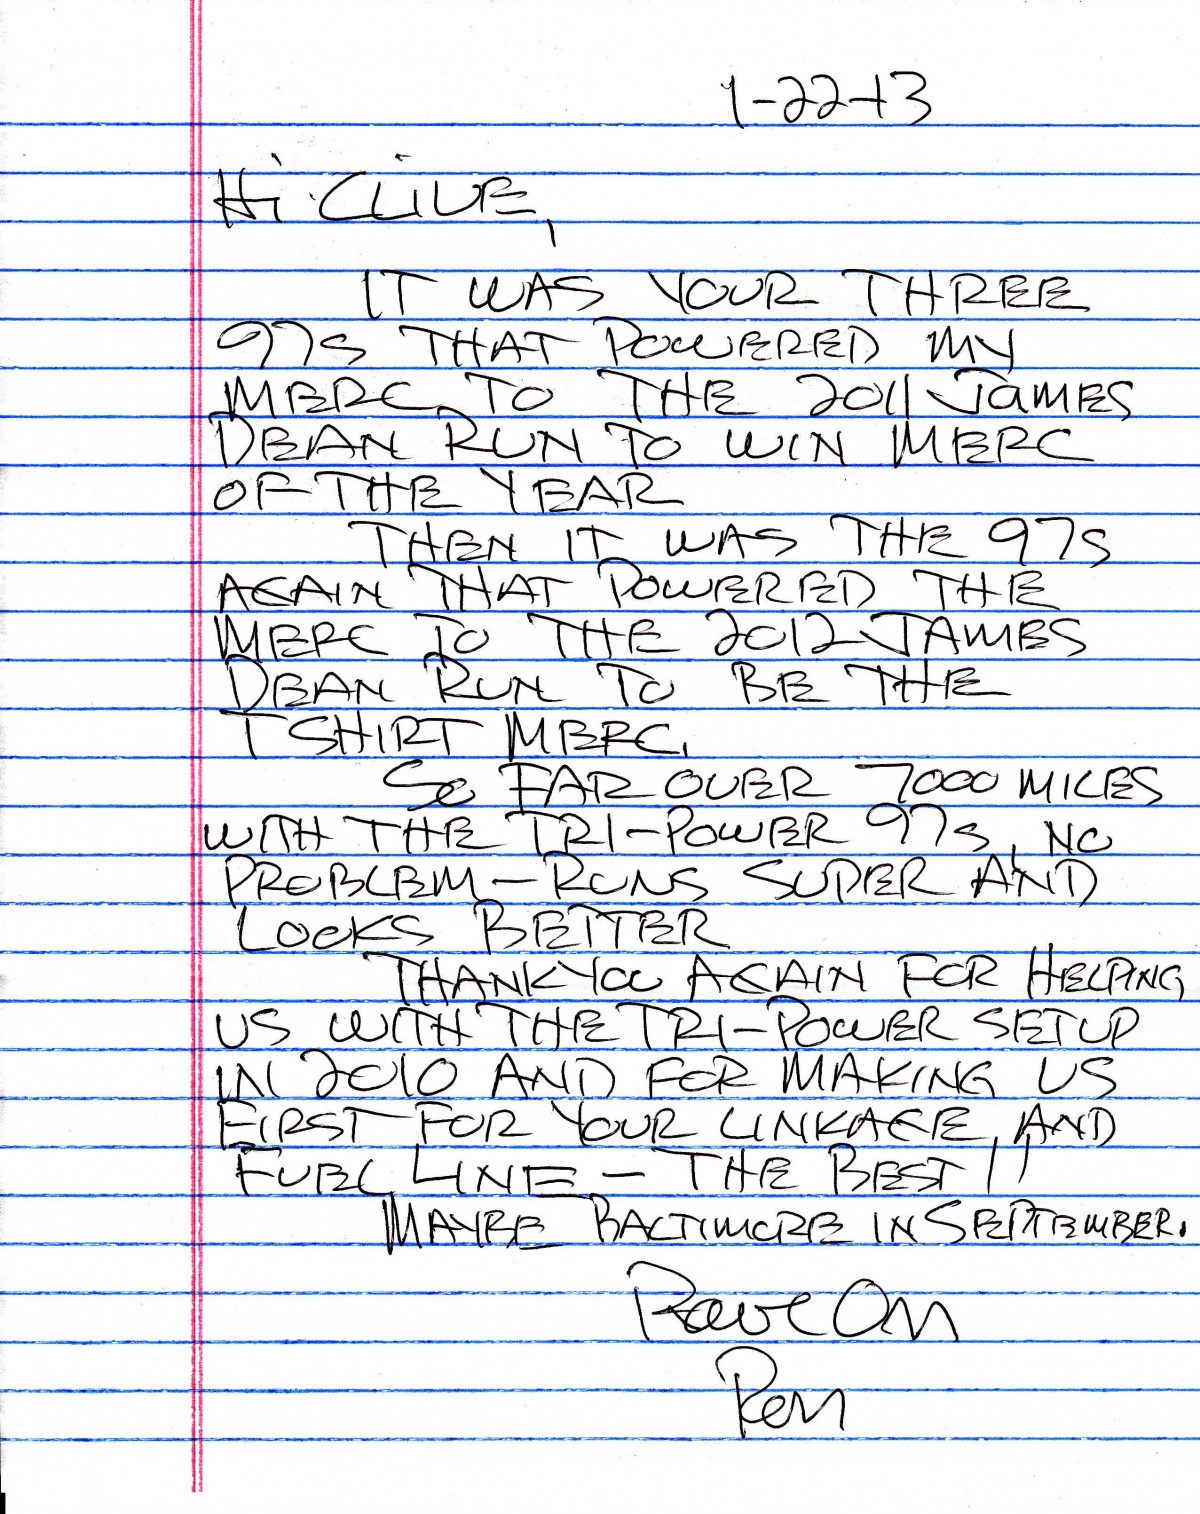 1-22-13
Hi CLIVE,
IT WAS YOUR THREE
97s THAT POWERED MY
MERC TO THE 2011 JAMES
DEAN RUN TO WIN MERC
OF THE YEAR
THEN IT WAS THE 97s
AGAIN THAT POWERED THE
MERC TO THE 2012 JAMES
DEAN RUN TO BE THE
T SHIRT MERC.
SO FAR OVER 7000 MILES
WITH THE TRI-POWER 97s, NO
PROBLEM - RUNS SUPER AND
LOOKS BETTER
THANK YOU AGAIN FOR HELPING
US WITH THE TRI-POWER SETUP
IN 2010 AND FOR MAKING US
FIRST FOR YOUR LINKAGE, AND
FUEL LINE - THE BEST!!
MAYBE BALTIMORE IN SEPTEMBER.
Rave On
Ron